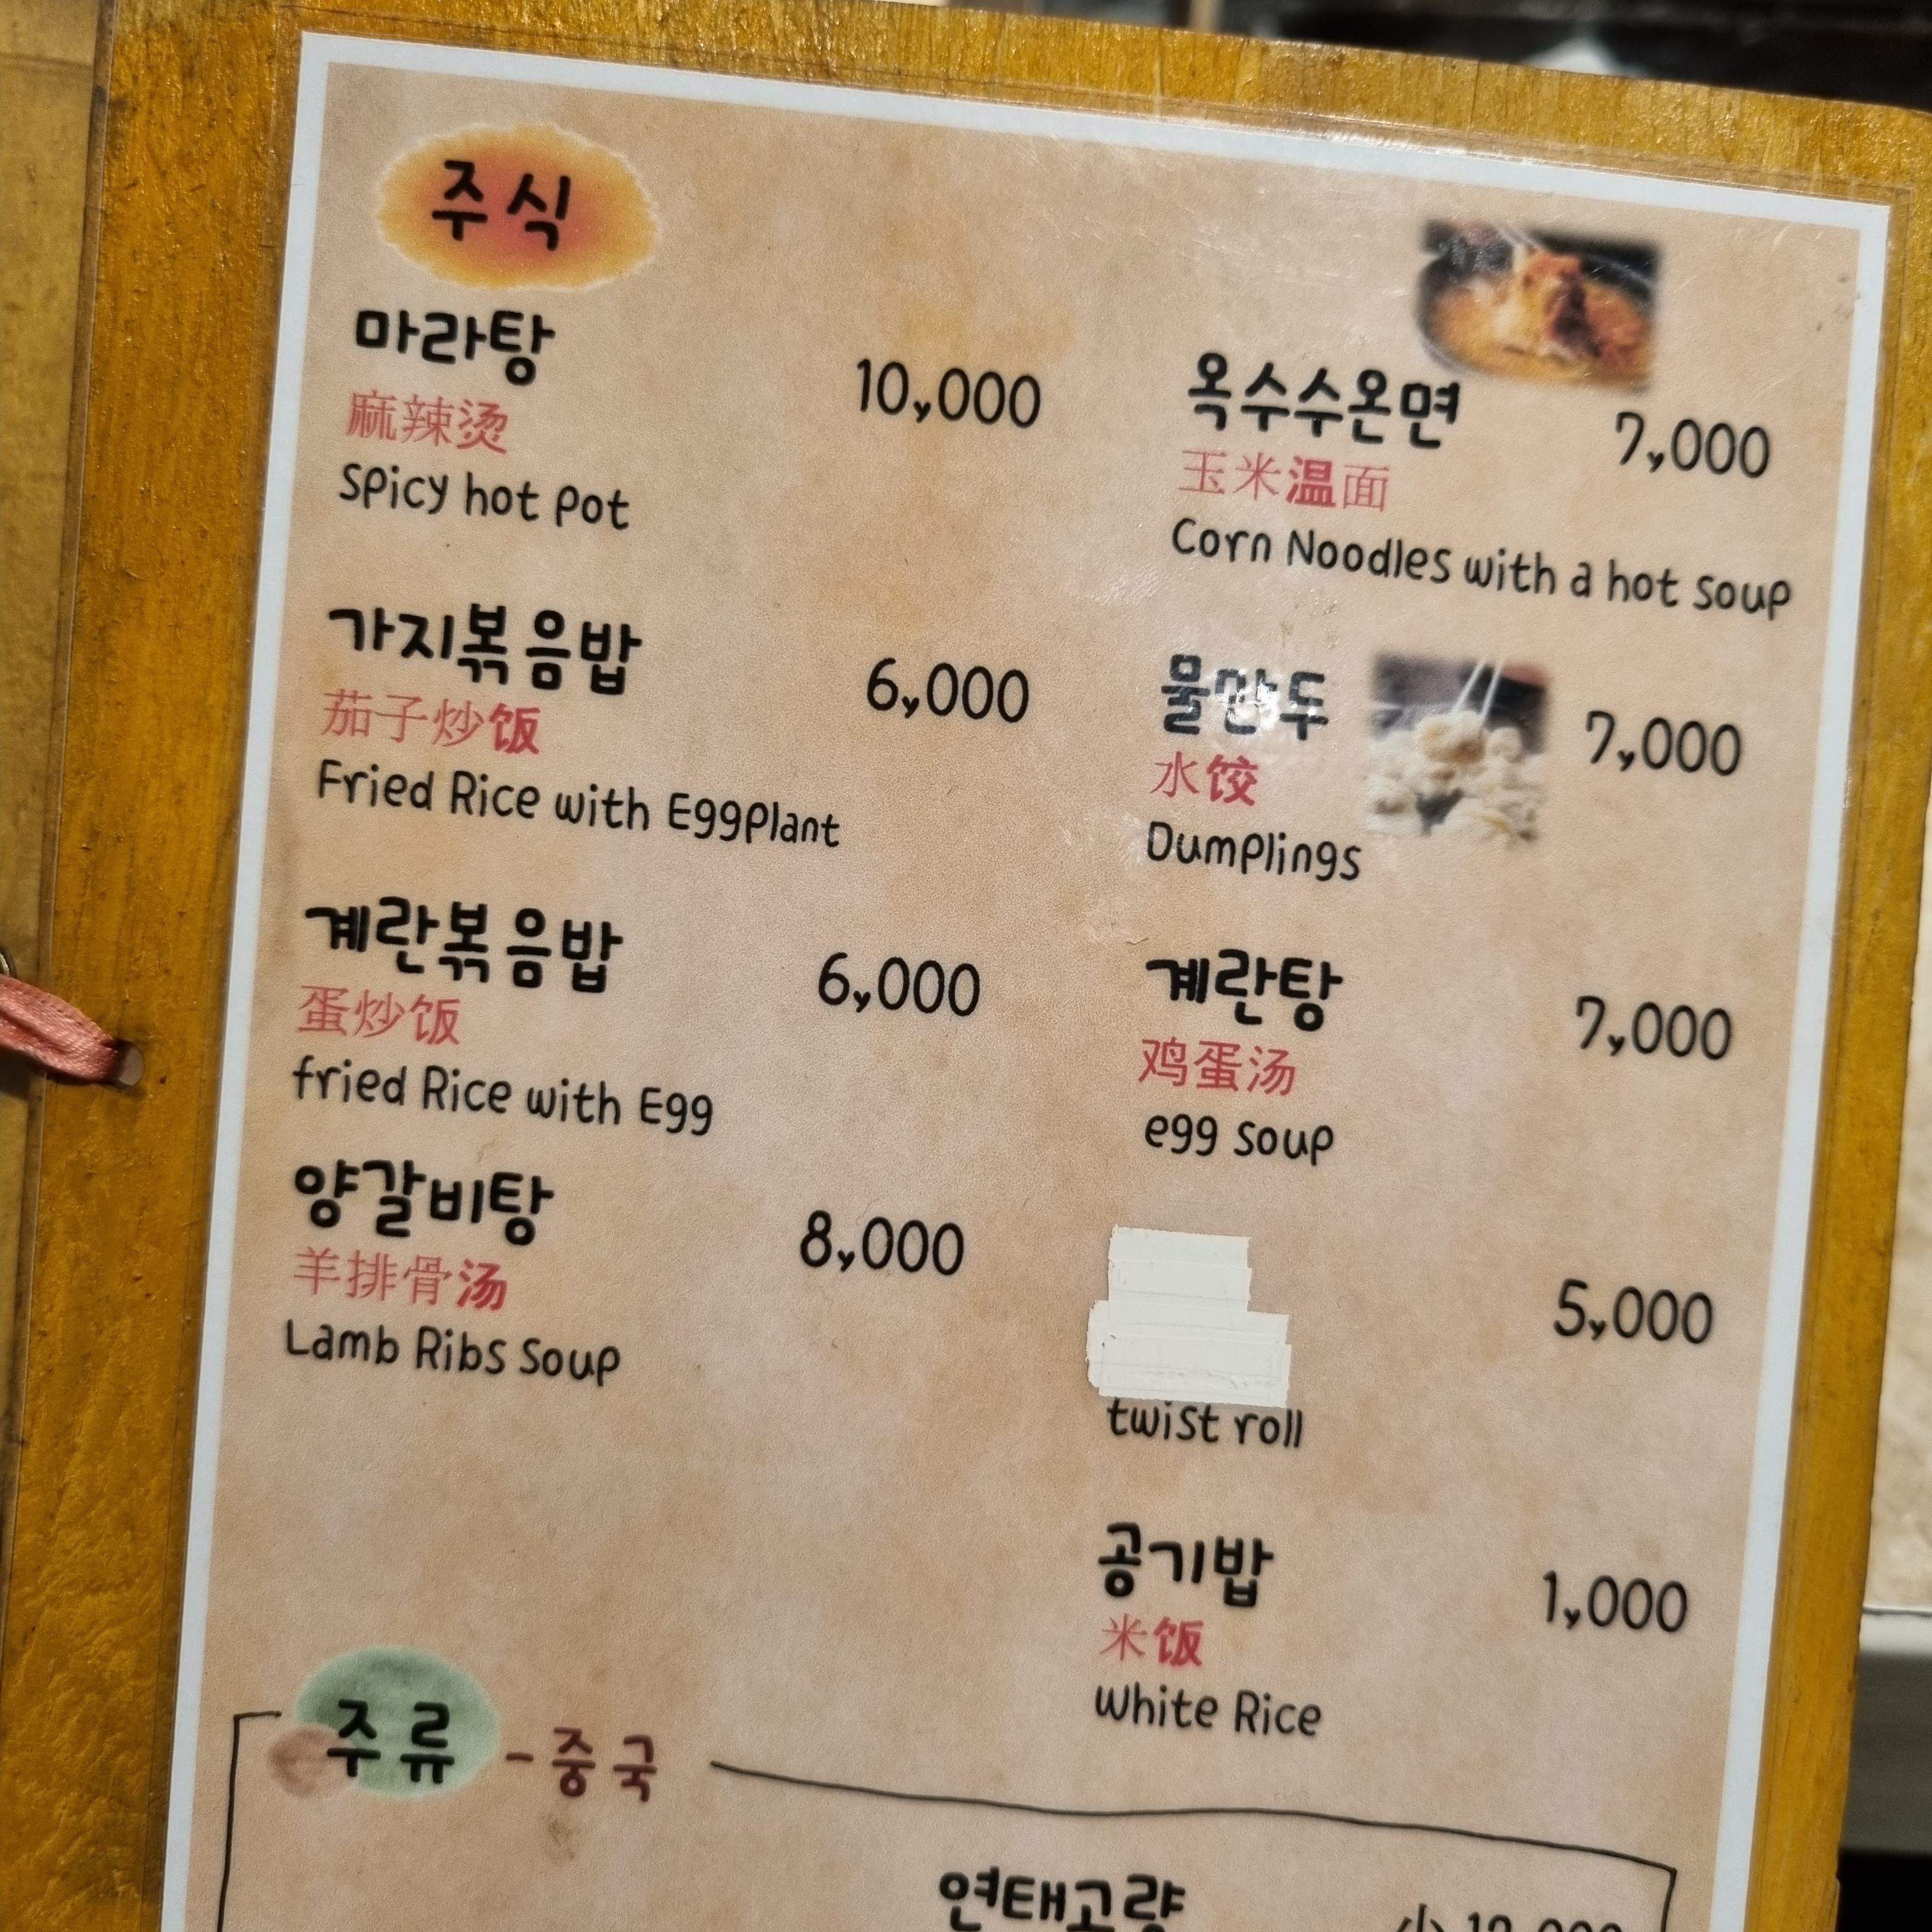 주식
마라탕
麻辣烫
Spicy hot pot
10,000
가지볶음밥
茄子炒饭
Fried Rice with Eggplant
6,000
계란볶음밥
蛋炒饭
fried Rice with Egg
6,000
양갈비탕
羊排骨汤
Lamb Ribs Soup
8,000
옥수수온면
玉米温面
Corn Noodles with a hot soup
7,000
물만두
水饺
Dumplings
7,000
계란탕
鸡蛋汤
egg soup
7,000
twist roll
5,000
공기밥
米饭
White Rice
1,000
주류 - 중국
연태고량
小